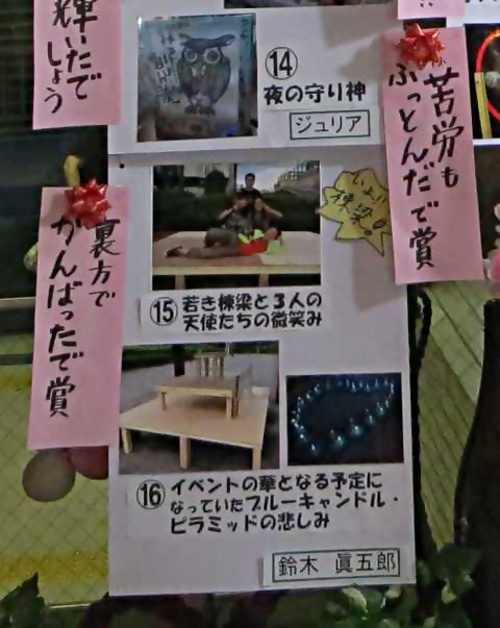 輝いたで
しょう
⑭
夜の守り神
ジュリア
苦労も
ふっとんだで賞
いよ!!
棟梁!
裏方で
がんばったで賞
⑮ 若き棟梁と3人の
天使たちの微笑み
⑯ イベントの華となる予定に
なっていたブルーキャンドル・
ピラミッドの悲しみ
鈴木 眞五郎